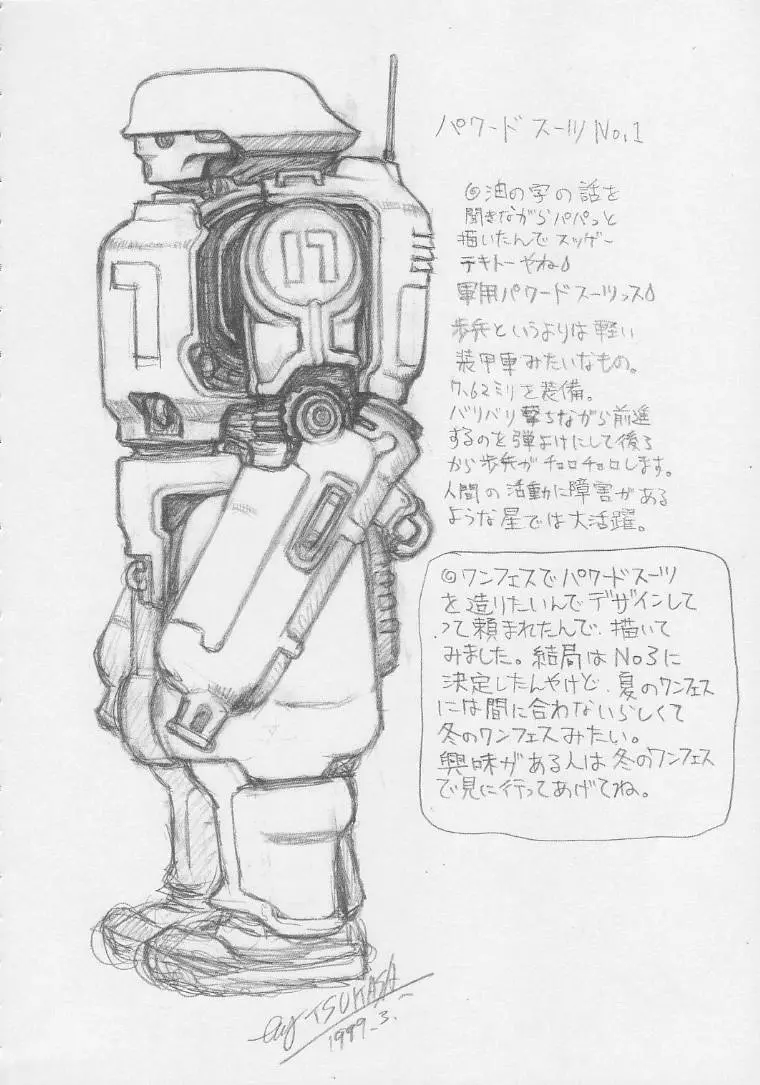 パワード スーツ No.1
◎油の字の話を
聞きながらパパっと
描いたんでスッゲー
テキトーやね
軍用パワードスーツっス
歩兵というよりは軽い
装甲車みたいなもの。
7.62ミリを装備。
バリバリ撃ちながら前進
するのを弾よけにして後ろ
から歩兵がチョロチョロします。
人間の活動に障害がある
ような星では大活躍。
◎ワンフェスでパワードスーツ
を造りたいんでデザインして
って頼まれたんで、描いて
みました。結局はNo3に
決定したんやけど、夏のワンフェス
には間に合わないらしくて
冬のワンフェスみたい。
興味がある人は冬のワンフェス
で見に行ってあげてね。
17
7
by TSUKASA
1999.3.